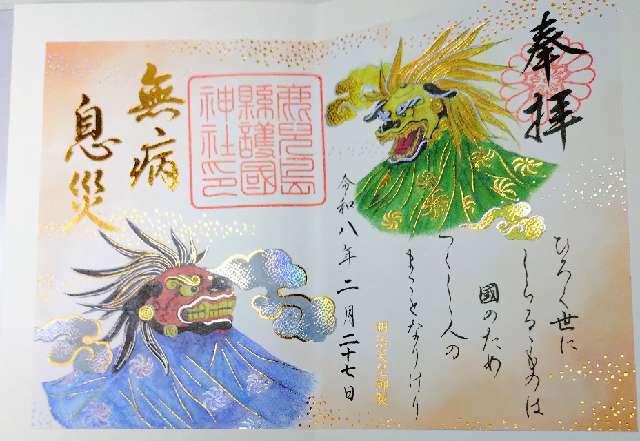 奉拝
ひろく世に
しらるゝものは
國のため
つくしゝ人の
まことなりけり
明治天皇御製
令和八年二月二十七日
鹿兒島
縣護國
神社印
無病
息災